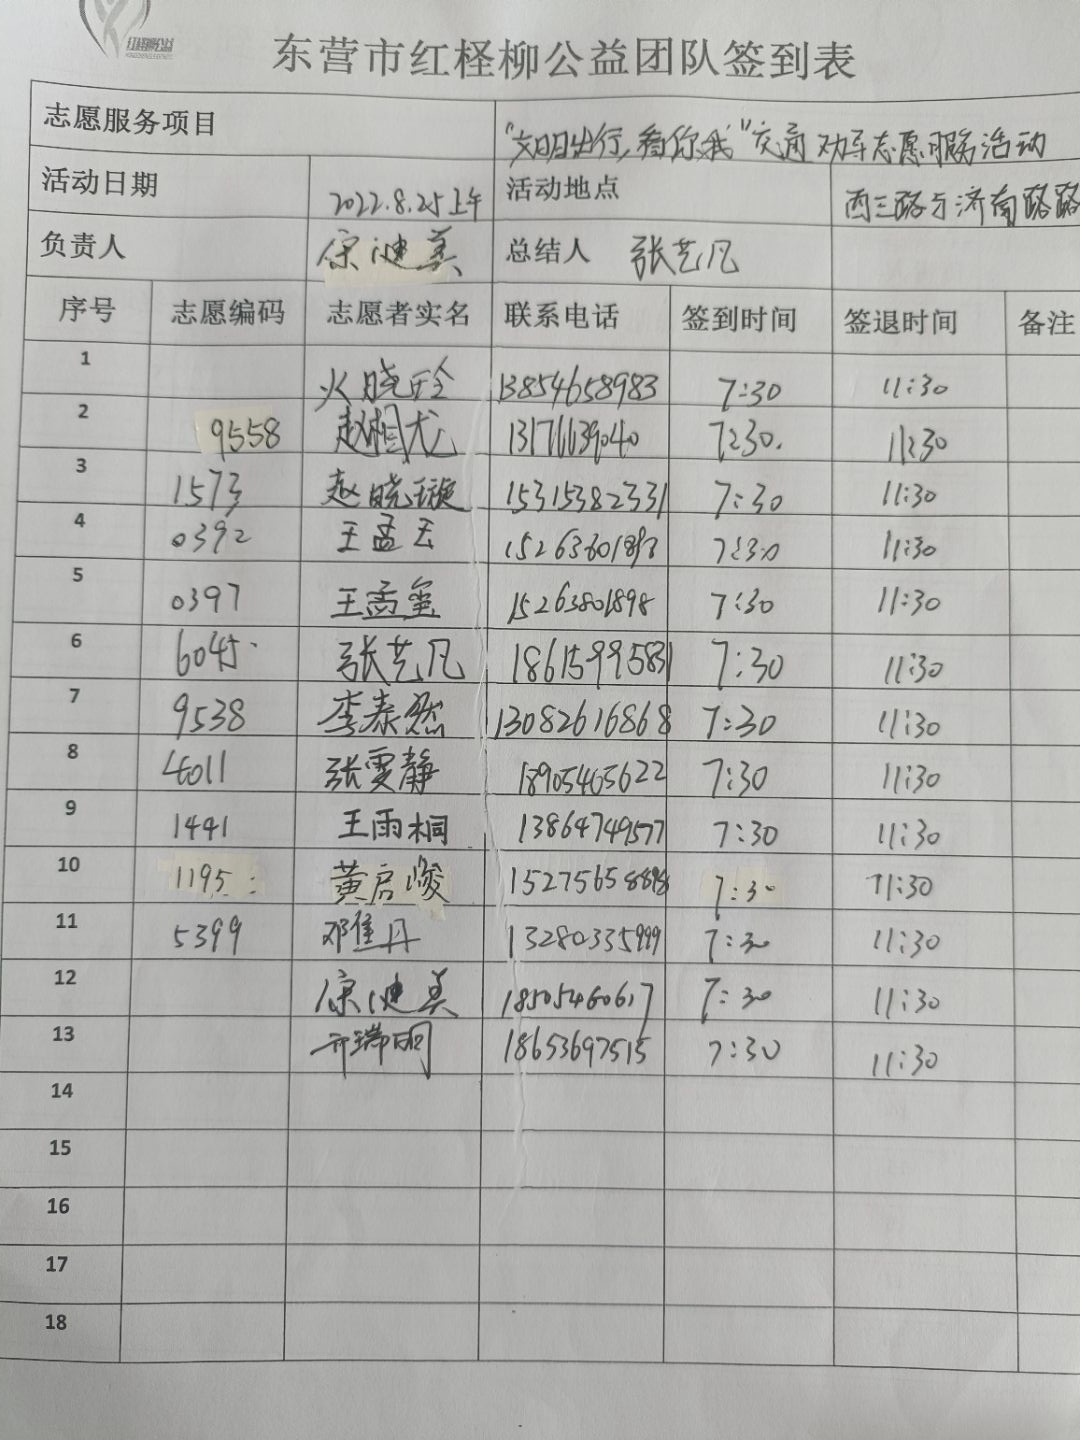 红柽柳公益
东营市红柽柳公益团队签到表
志愿服务项目 "文明出行,看你我"交通劝导志愿服务活动
活动日期 2022.8.25上午 活动地点 西三路与济南路路
负责人 宋健美 总结人 张艺凡
序号 志愿编码 志愿者实名 联系电话 签到时间 签退时间 备注
1 火晓玲 13854658983 7:30 11:30
2 9558 赵相龙 13176639040 7:30. 11:30
3 1573 赵晓璇 15315382331 7:30 11:30
4 0392 王孟云 7:30 11:30
5 0397 王孟玺 15263801898 7:30 11:30
6 6045 张艺凡 18615995831 7:30 11:30
7 9538 李泰然 13082616868 7:30 11:30
8 4011 张雯静 18905465622 7:30 11:30
9 1441 王雨桐 13864749577 7:30 11:30
10 1195 黄启峻 15275658898 7:30 11:30
11 5399 邓佳丹 13280335999 7:30 11:30
12 宋健美 18505460617 7:30 11:30
13 18653697515 7:30 11:30
14
15
16
17
18